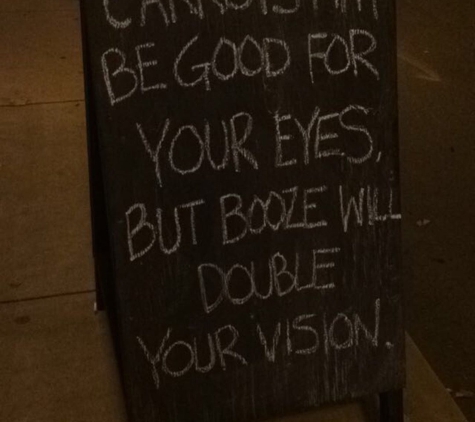 CARROTS MAY
BE GOOD FOR
YOUR EYES,
BUT BOOZE WILL
DOUBLE
YOUR VISION.